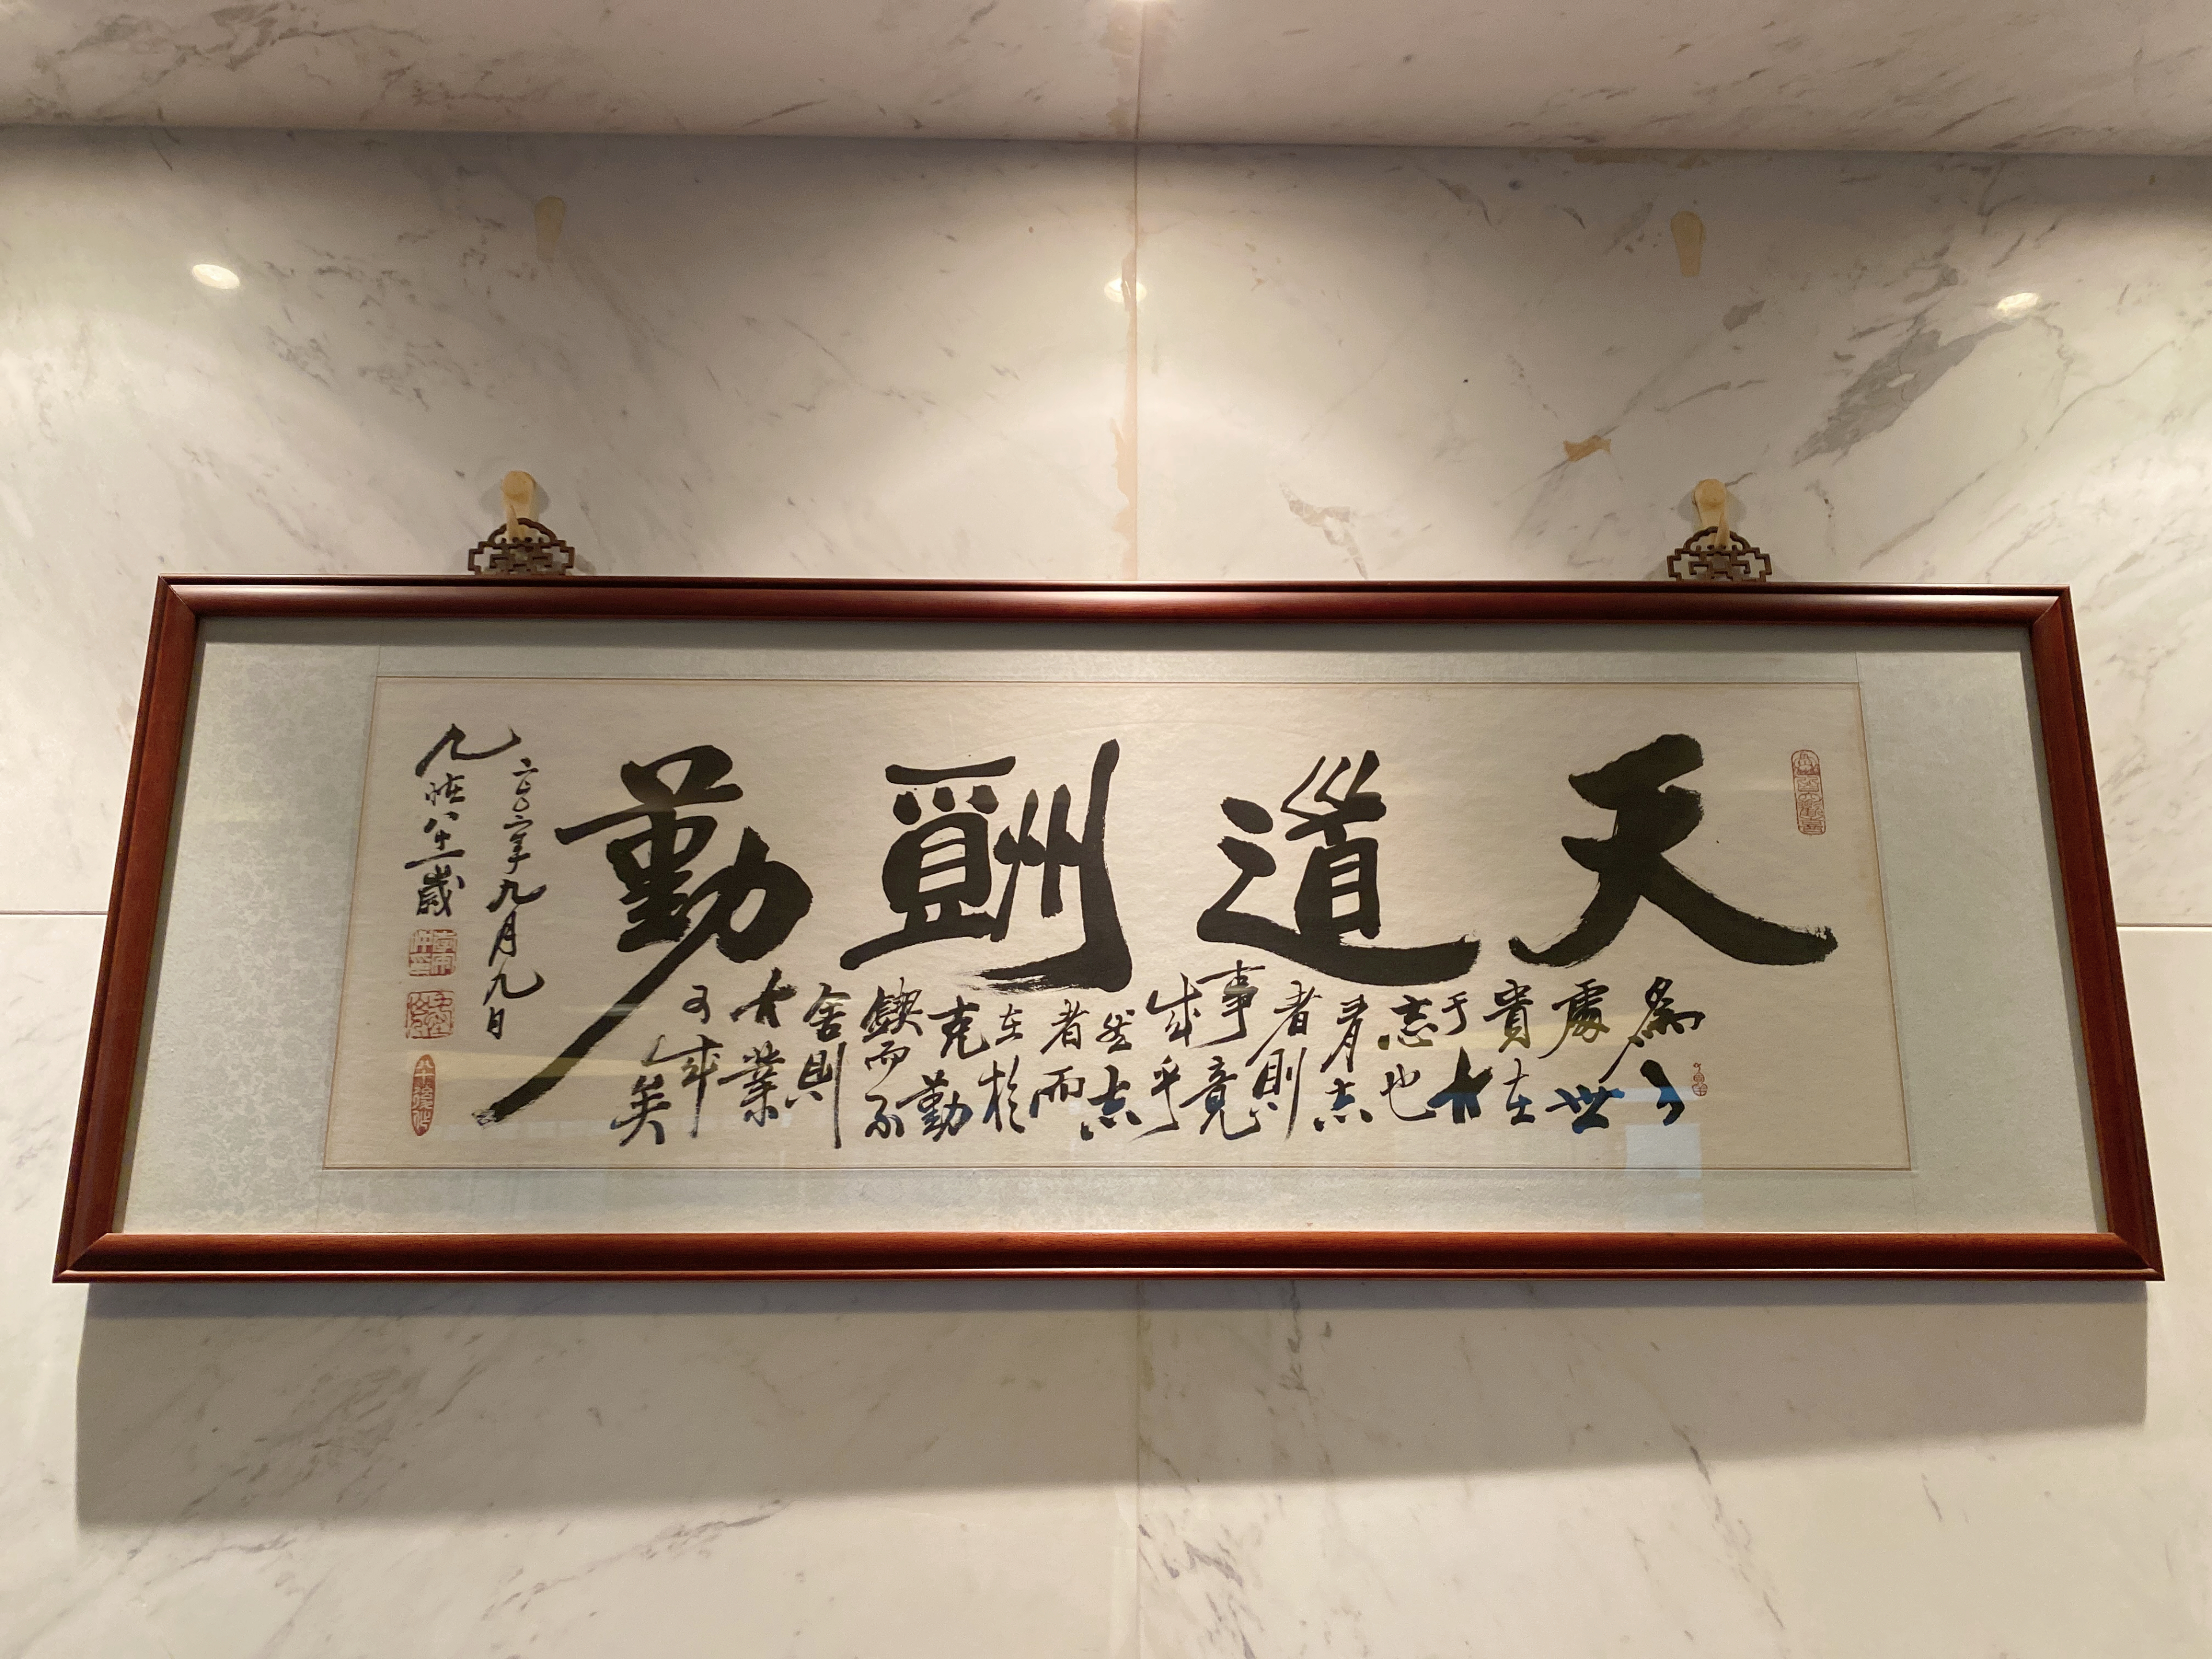 天道酬勤
為人
處世
貴在
于大
志也
有志
者則
事竟
成乎
然志
者而
在於
克勤
鍥而不
舍則
大業
可成
矣
年九月九日
歲
八十後作